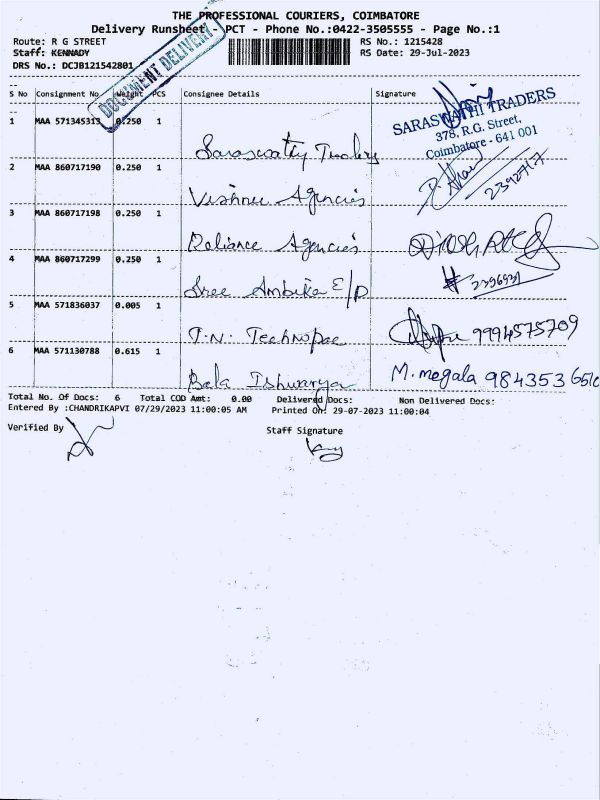 THE PROFESSIONAL COURIERS, COIMBATORE
Delivery Runsheet - PCT - Phone No.:0422-3505555 - Page No.:1
Route: R G STREET RS No.: 1215428
Staff: KENNADY RS Date: 29-Jul-2023
DRS No.: DCJB121542801
DOCUMENT DELIVERY
S No Consignment No Weight PCS Consignee Details Signature
SARASWATHI TRADERS
378, R.G. Street,
Coimbatore - 641 001
1 MAA 571345313 0.250 1
Saraswathy Traders
2 MAA 860717190 0.250 1
2392717
Vishnu Agencies
3 MAA 860717198 0.250 1
Reliance Agencies
4 MAA 860717299 0.250 1
Sree Ambika E/P
5 MAA 571836037 0.005 1
T.N. Technopac 9994575709
6 MAA 571130788 0.615 1
Bala Ishwarya M. megala 984353 6510
Total No. Of Docs: 6 Total COD Amt: 0.00 Delivered Docs: Non Delivered Docs:
Entered By :CHANDRIKAPVI 07/29/2023 11:00:05 AM Printed On: 29-07-2023 11:00:04
Verified By Staff Signature